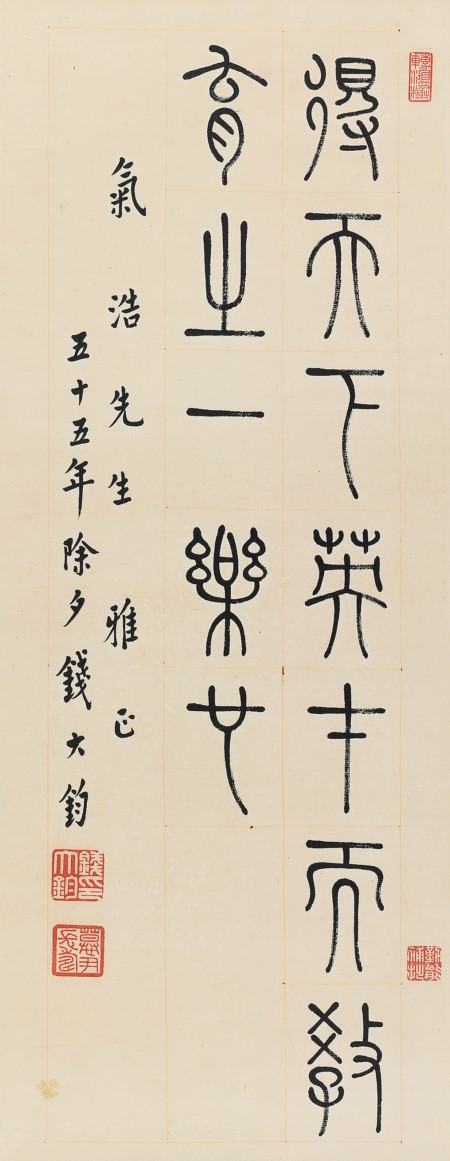 得天下英才而教
育之一樂也
氣浩先生 雅正
五十五年除夕錢大鈞